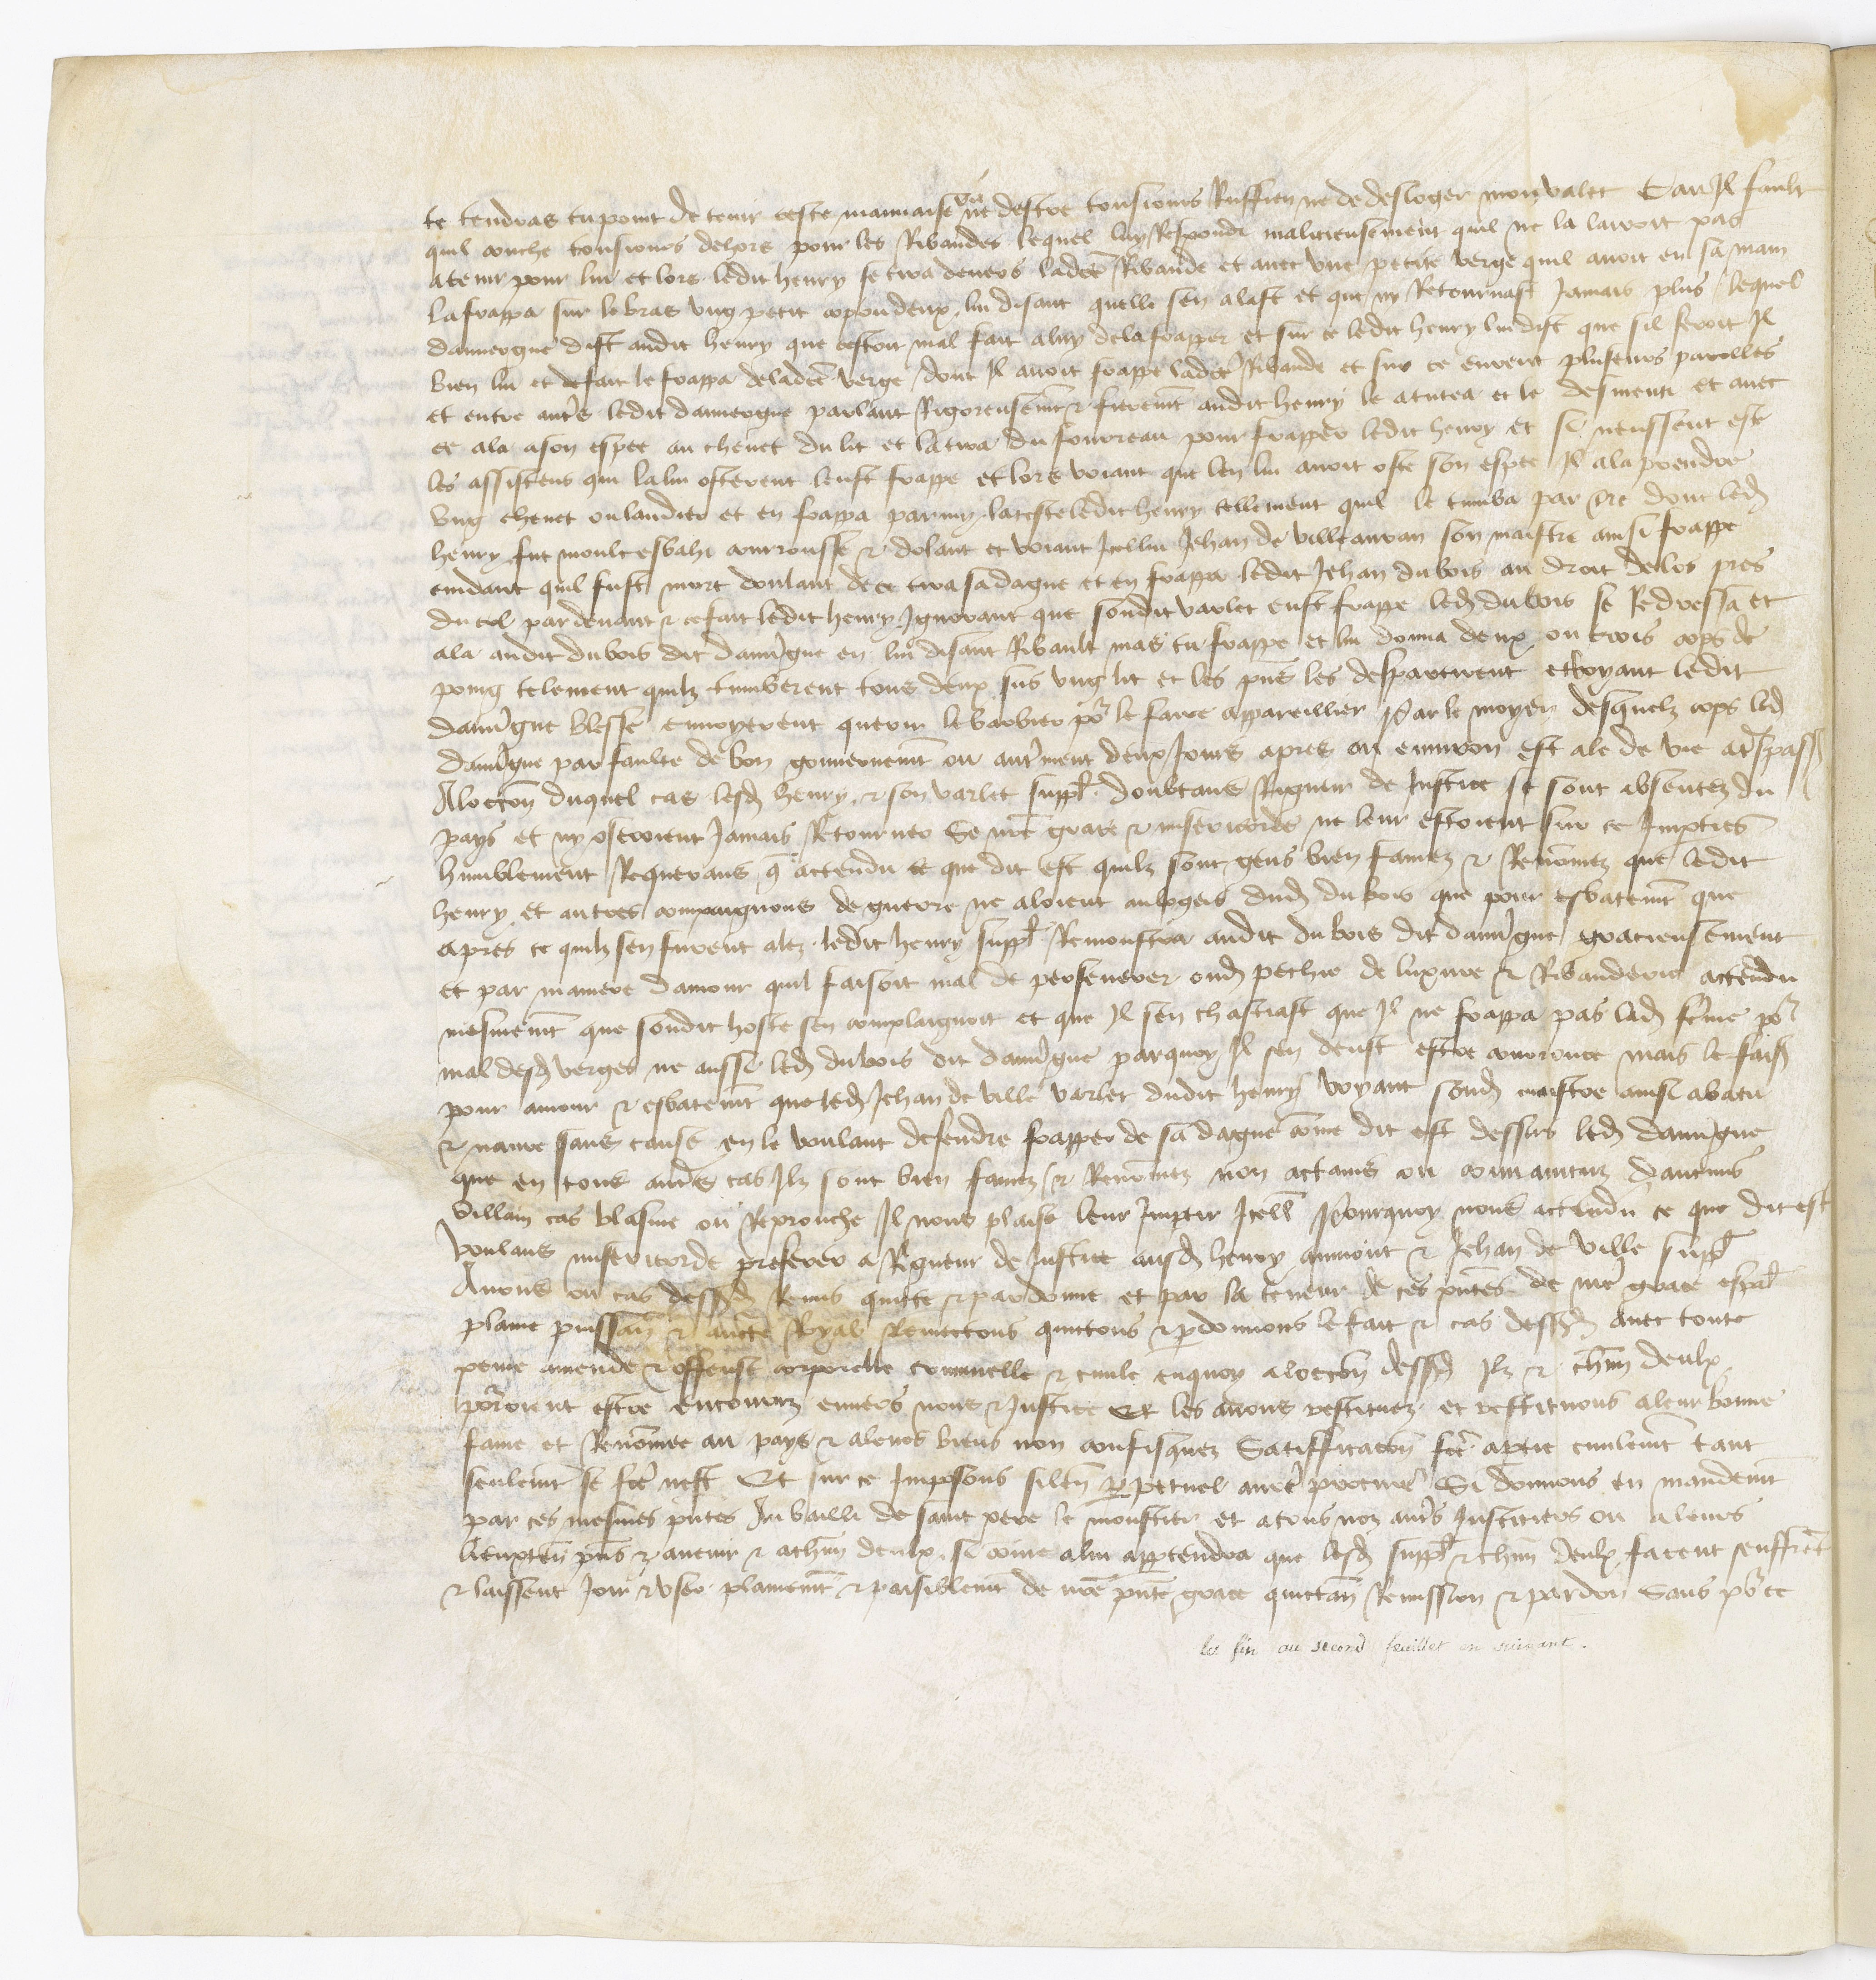 te tendras tu point de tenir ceste mauvaise vie destre tousiours Ruffien ne de desloger mon valet Car Il fault
quil couche tousiours dehors pour les Ribaudes lequel luy Respondi malicieusement quil ne la lairoit pas
atenir pour lui et lors ledit henry se tira devers ladicte Ribaude et avec une petite verge quil avoit en sa main
la frappa sur le bras ung petit cop ou deux lui disant quelle sen alast et que ny Retournast Jamais plus lequel
dauvergne dist audit henry que cestoit mal fait aluy de la frapper et sur ce ledit henry lui dist que sil feroit Il
bien lui et de fait le frappa de ladicte verge dont Il avoit frappe ladicte Ribaude et sur ce eurent pluseurs parolles
et entre autres ledit dauvergne parlant Rigoreusement & fierement audit henry le atutea et le desmenti et avec
ce ala a son espee au chevet du lit et la tira du fourreau pour frapper ledit henry et se neussent este
les assistens qui la lui osterent leust frappe et lors voiant que len lui avoit oste son espee Il ala prendre
ung chenet ou landier et en frappa parmy la teste ledit henry tellement quil le tumba par terre dont led
henry fut moult esbahi courrousse & dolant et voiant Icellui Jehan de ville son maistre ainsi frappe
cuidant quil fust mort doulant de ce tira sa dague et en frappa ledit Jehan dubois au droit de los pres
du col par devant & ce fait ledit henry Ignorant que sondit varlet eust frappe led dubois se Redressa et
ala audit dubois dit dauvergne en lui disant Ribault mas tu frappe et lui donna deux ou trois cops de
poing telement quilz tumberent tous deux sus ung lit et les presens les despartirent et voyant ledit
dauvergne blesse envoyerent querir le barbier pour le faire appareillier Par le moyen desquelz cops led
dauvergne par faulte de bon gouvernement ou autrement deux Jours apres ou environ est ale de vie a trespass
Aloccon duquel cas lesd henry & son varlet suppl doubtans Rigueur de Justice se sont absentez du
pays et ny oseroient Jamais Retourner Se nre grace & misericorde ne leur estoient sur ce Imparties
humblement Requerans q attendu ce que dit est quilz sont gens bien famez & Renommez que ledit
henry et autres compaignons de guerre ne aloient au logeis dud dubois que pour esbatement que
apres ce quilz sen furent alez ledit henry suppl Remonstra audit dubois dit dauvergne gracieusement
et par maniere damour quil faisoit mal de perseverer oud pechie de luxure & Ribauderie attendu
mesmement que sondit hoste sen complaignoit et que Il sen chastiast que Il ne frappa pas lad femme pour
mal desd verges ne aussi led dubois dit dauvergne parquoy Il sen deust estre courouce mais le fais
pour amour & esbatement que led Jehan de ville varlet dudit henry voyant sond maistre ainsi abatu
& navre sans cause en le voulant defendre frapper de sa dague come dit est dessus led dauvergne
que en tous autres cas Ilz sont bien famez & Renommez non actains ou convaincuz daucuns
villain cas blasme ou Reprouche Il nous plaise leur Impartir Icelle Pourquoy nous attendu ce que dit est
voulans misericorde preferer a Rigueur de Justice ausd henry & Jehan de ville suppl
Avons ou cas dessusd Remis quitte & pardonne et par la teneur de ces presentes de nre grace especial
plaine puissance & auctorite Royal Remectons quictons & pardonnons le fait & cas dessusd avec toute
peine amende & offense corporelle criminelle & civile enquoy aloccon dessusd Ilz & chun deulx
pourroient estre encourruz envers nous & Justice Et les avons restituez et restituons a leur bonne
fame et Renommee au pays & a leurs biens non confisquez Satisfacion fcte a partie civilement tant
seulement se fcte nest Et sur ce Imposons silence perpetuel a nre procureur Si donnons en mandement
par ces mesmes presentes Au bailli de saint pere le moustier et a tous noz autres Justiciers ou a leurs
lieuxten presens & avenir & a chun deulx si come a lui appartendra que lesd suppl & chun deulx facent seuffrent
& laissent Joir & user plainement & paisiblement de nre presente grace quictance Remission & pardon Sans pour ce
la fin au second feuillet en suivant.